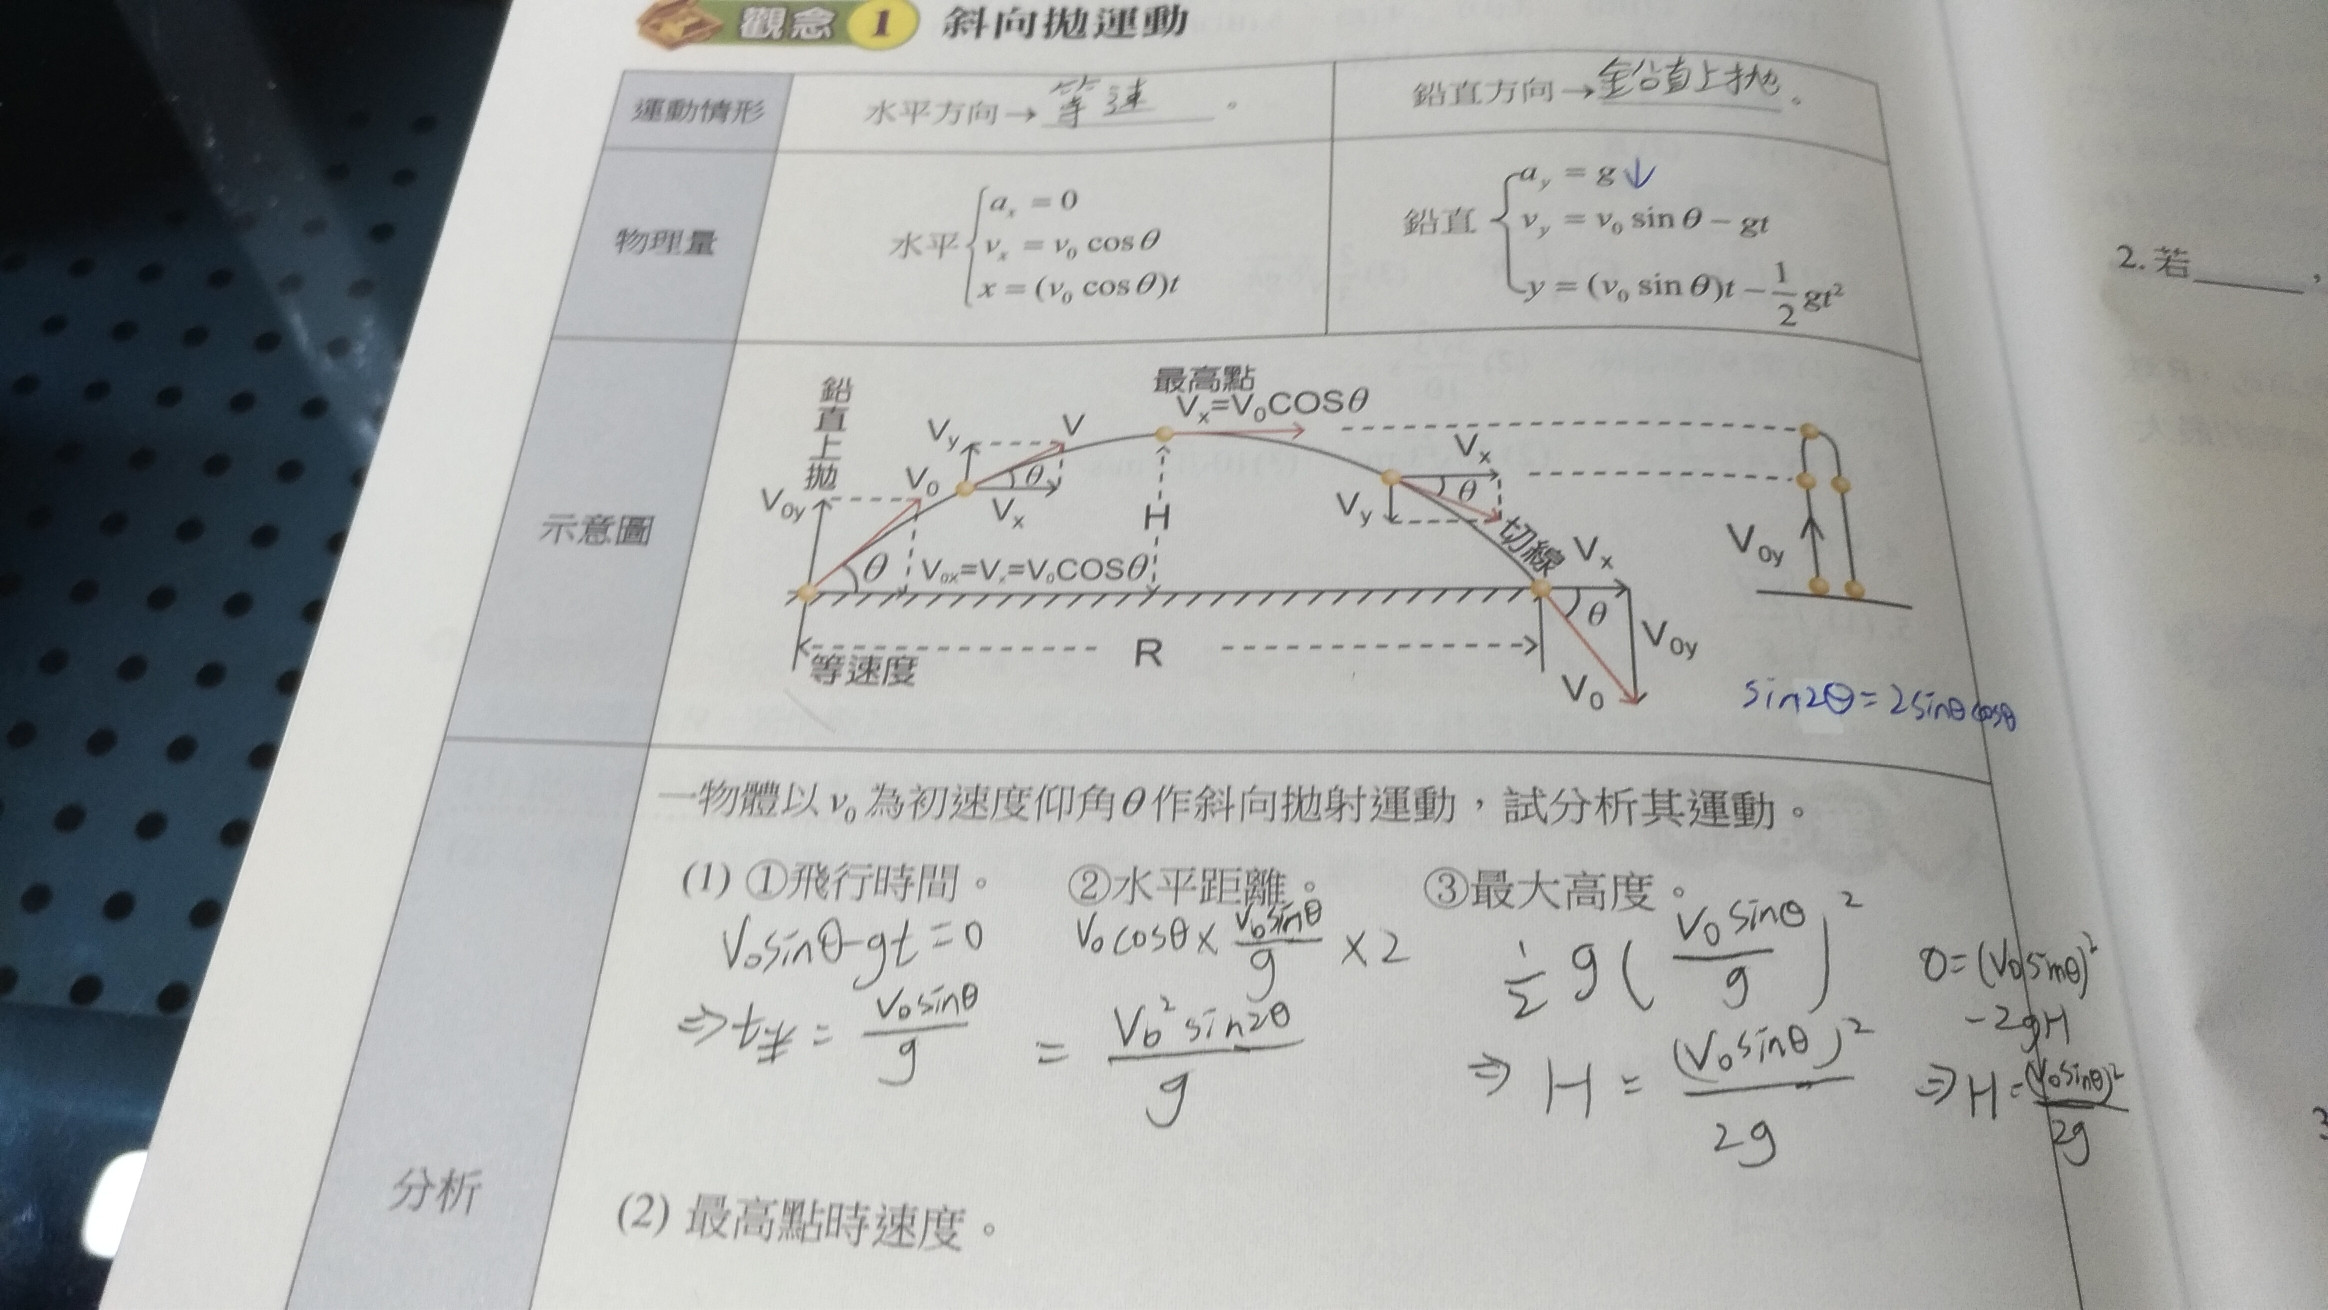 觀念 1 斜向拋運動
運動情形
水平方向→等速。
鉛直方向→鉛直上拋。
物理量
水平
aₓ = 0
vₓ = v₀ cos θ
x = (v₀ cos θ)t
鉛直
a_y = g↓
v_y = v₀ sin θ − gt
y = (v₀ sin θ)t − 1/2 gt²
示意圖
鉛直上拋
最高點
Vₓ=V₀COSθ
V_y
V
θ
Vₓ
V₀
V₀y
θ
V₀ₓ=Vₓ=V₀COSθ
H
Vₓ
θ
V_y
切線
Vₓ
θ
V₀y
V₀
R
等速度
V₀y
sin2θ=2sinθcosθ
分析
一物體以 v₀ 為初速度仰角 θ 作斜向拋射運動,試分析其運動。
(1) ①飛行時間。 ②水平距離。 ③最大高度。
V₀sinθ-gt=0
⇒t半= V₀sinθ/g
V₀cosθ× V₀sinθ/g ×2
= V₀²sin2θ/g
1/2 g(V₀sinθ/g)²
⇒ H = (V₀sinθ)²/2g
0=(V₀sinθ)²
-2gH
⇒H=(V₀sinθ)²/2g
(2) 最高點時速度。
2. 若____,